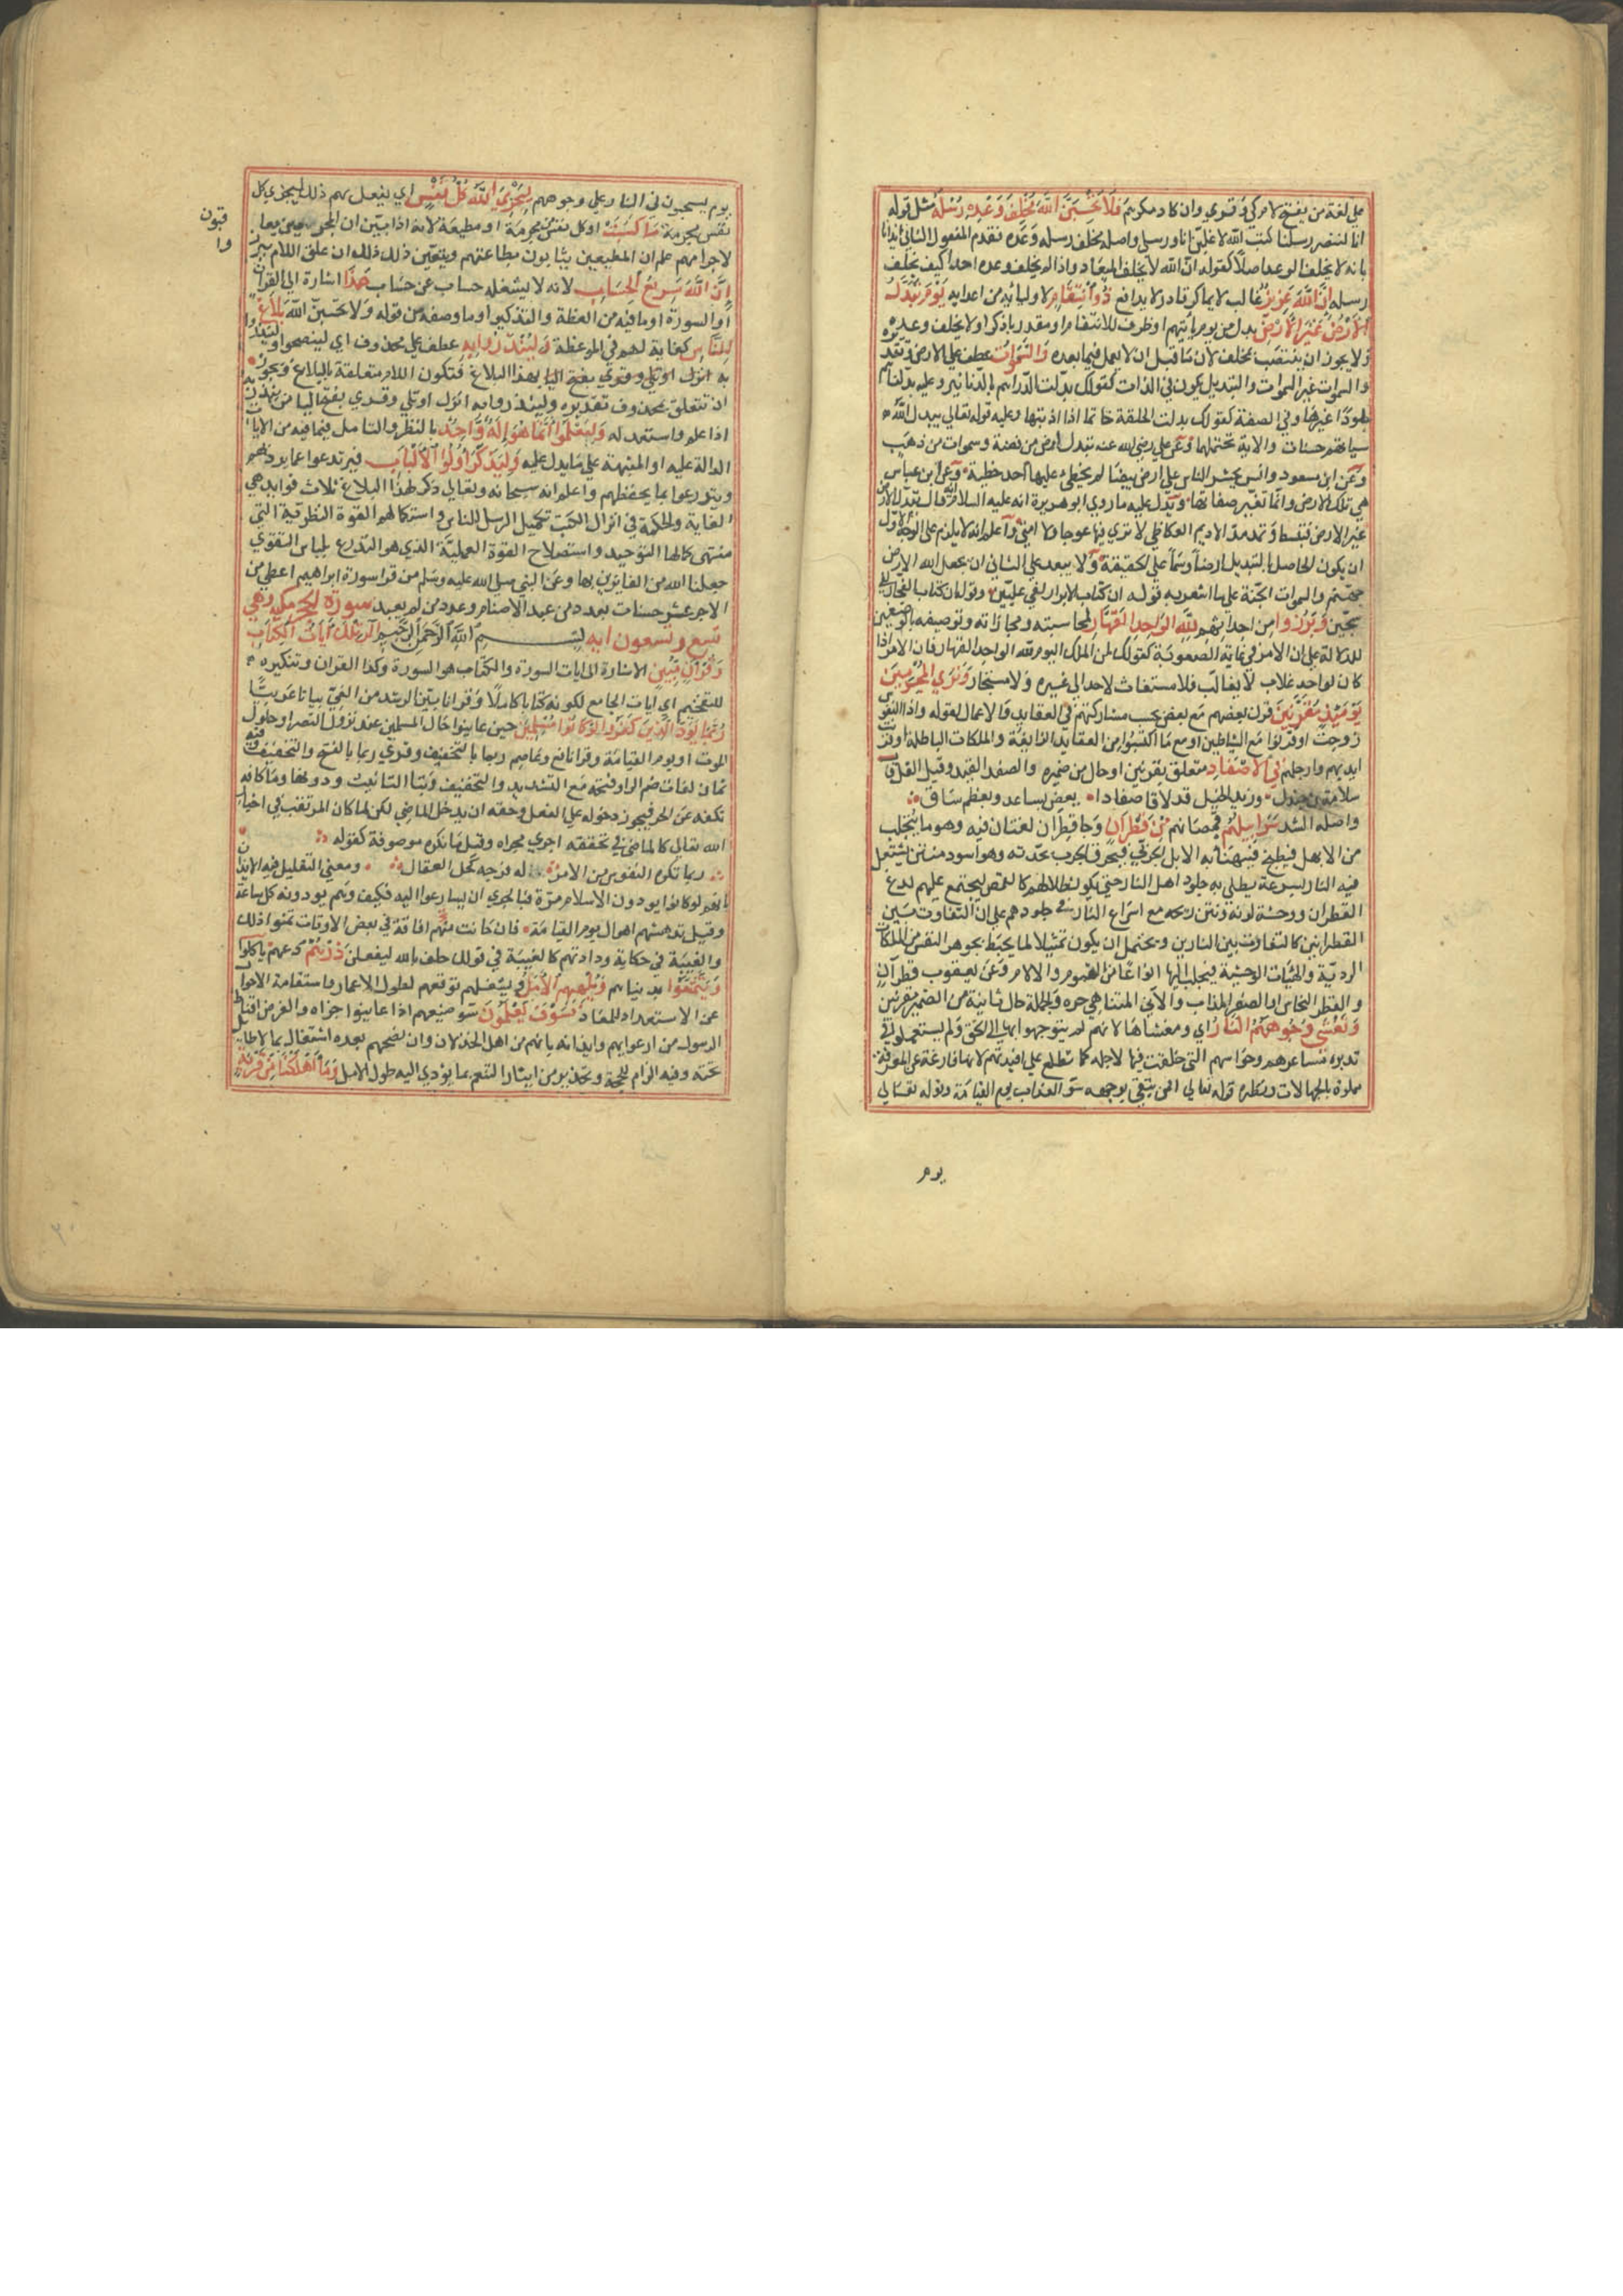 علي لغة من يفتح لام كي وقري وان كاد مكرهم فَلَا تَحْسَبَنَّ اللَّهَ مُخْلِفَ وَعْدِهِ رُسُلَهُ مثل قوله
انا لننصر رسلنا كتب الله لاغلبن انا ورسلي واصله مخلف رسله وعده فقدم المفعول الثاني ايذانا
بانه لا يخلف الوعد اصلا كقوله ان الله لا يخلف الميعاد واذا لم يخلف وعده احدا كيف يخلف
رسله اِنَّ اللَّهَ عَزِيزٌ غالب لا يماكر قادر لا يدافع ذُو انْتِقَامٍ لاوليائه من اعدايه يَوْمَ تُبَدَّلُ
الْاَرْضُ غَيْرَ الْاَرْضِ بدل من يوم ياتيهم او ظرف للانتقام او مقدر باذكر او لا يخلف وعده
ولا يجوز ان ينتصب بمخلف لان ما قبل ان لا يعمل فيما بعده وَالسَّمٰوَاتُ عطف علي الارض وتقديره
والسموات غير السموات والتبديل يكون في الذات كقولك بدلت الدراهم بالدنانير وعليه بدلناهم
جلودا غيرها وفي الصفة كقولك بدلت الحلقة خاتما اذا اذبتها وعليه قوله تعالي يبدل الله
سياتهم حسنات والاية تحتملهما وعن علي رضي الله عنه تبدل ارض من فضة وسموات من ذهب
وعن ابن مسعود وانس يحشر الناس علي ارض بيضا لم يخطي عليها احد خطية وعن ابن عباس
هي تلك الارض وانما تغير صفاتها ويدل عليه ما روي ابو هريرة انه عليه السلام قال تبدل الارض
غير الارض فتبسط وتمد مد الاديم العكاظي لا تري فيها عوجا ولا امتا واعلم انه لا يلزم علي الوجه الاول
ان يكون الحاصل بالتبديل ارضا وسما علي الحقيقة ولا يبعد علي الثاني ان يجعل الله الارض
جهنم والسموات الجنة علي ما اشعر به قوله ان كتاب الابرار لفي عليين وقوله ان كتاب الفجار لفي
سجين وَبَرَزُوا من اجداثهم لِلَّهِ الْوَاحِدِ الْقَهَّارِ لمحاسبته ومجازاته وتوصيفه بالوصفين
للدلالة علي ان الامر في غاية الصعوبة كقولك لمن الملك اليوم لله الواحد القهار فان الامر اذا
كان لواحد غلاب لا يغالب فلا مستغاث لاحد الي غيره ولا مستجار وَتَرَي الْمُجْرِمِينَ
يَوْمَئِذٍ مُقَرَّنِينَ قرن بعضهم مع بعض بحسب مشاركتهم في العقايد والاعمال لقوله واذا النفوس
زوجت او قرنوا مع الشياطين او مع ما اكتسبوا من العقايد الزايغة والملكات الباطلة او قرنت
ايديهم وارجلهم فِي الْاَصْفَادِ متعلق بمقرنين او حال من ضميره والصفد القيد وقيل الغل قال
سلامة بن جندل وزيد الخيل قد لاقا صفادا يعض بساعد وبعظم ساق
واصله الشد سَرَابِيلُهُمْ قمصانهم مِنْ قَطِرَانٍ وجا قطران لغتان فيه وهو ما يتحلب
من الابهل فيطبخ فتهنا به الابل الجربي فيحرق الجرب بحدته وهو اسود منتن يشتعل
فيه النار بسرعة يطلي به جلود اهل النار حتي يكون طلاؤه لهم كالقمص ليجتمع عليهم لدغ
القطران ووحشة لونه ونتن ريحه مع اسراع النار في جلودهم علي ان التفاوت بين
القطرانين كالتفاوت بين النارين ويحتمل ان يكون تمثيلا لما يحيط بجوهر النفس من الملكات
الردية والهيات الوحشية فيجلب اليها انواعا من الغموم والالام وعن يعقوب قطر آن
والقطر النحاس او الصفر المذاب والآني المتناهي حره والجملة حال ثانية من الضمير في مقرنين
وَتَغْشَى وُجُوهَهُمُ النَّارُ اي وتغشاها لانهم لم يتوجهوا بها الي الحق ولم يستعملوا في
تدبره مشاعرهم وحواسهم التي خلقت فيها لاجله كما تطلع علي افيدتهم لانها فارغة عن المعرفة
مملوة بالجهالات ونظيره قوله تعالي افمن يتقي بوجهه سو العذاب يوم القيامة وقوله تعالي
يوم
يوم يسحبون في النار علي وجوههم لِيَجْزِيَ اللَّهُ كُلَّ نَفْسٍ اي يفعل بهم ذلك ليجزي كل
نفس مجرمة مَا كَسَبَتْ او كل نفس مجرمة او مطيعة لانه اذا بين ان المجرمين يعاقبون
لاجرامهم علم ان المطيعين يثابون بطاعتهم ويتعين ذلك ان علق اللام ببرزوا
اِنَّ اللَّهَ سَرِيعُ الْحِسَابِ لانه لا يشغله حساب عن حساب هَذَا اشارة الي القران
او السورة او ما فيه من العظة والتذكير او ما وصفه من قوله ولا تحسبن الله بَلَاغٌ
لِلنَّاسِ كفاية لهم في الموعظة وَلِيُنْذَرُوا بِهِ عطف علي محذوف اي لينصحوا ولينذروا
به انزل او تلي وقري بفتح اليا بهذا البلاغ فتكون اللام متعلقة بالبلاغ ويجوز
ان تتعلق بمحذوف تقديره ولينذروا به انزل او تلي وقري بفتح اليا من نذر به
اذا علم واستعد له وَلِيَعْلَمُوا اَنَّمَا هُوَ اِلٰهٌ وَاحِدٌ بالنظر والتامل فيما فيه من الايات
الدالة عليه او المنبهة علي ما يدل عليه وَلِيَذَّكَّرَ اُولُوا الْاَلْبَابِ فيرتدعوا عما يرديهم
ويتدرعوا بما يحفظهم واعلم انه سبحانه وتعالي ذكر لهذا البلاغ ثلاث فوايد هي
الغاية والحكمة في انزال الكتب تكميل الرسل للناس واستكمالهم القوة النظرية التي
منتهي كمالها التوحيد واستصلاح القوة العملية الذي هو التدرع بلباس التقوي
جعلنا الله من الفايزين بها وعن النبي صلي الله عليه وسلم من قرا سورة ابراهيم اعطي من
الاجر عشر حسنات بعدد من عبد الاصنام وعدد من لم يعبد سورة الحجر مكية وهي
تسع وتسعون اية بِسْمِ اللَّهِ الرَّحْمَنِ الرَّحِيمِ الٓرٰ تِلْكَ اٰيَاتُ الْكِتَابِ
وَقُرْاٰنٍ مُبِينٍ الاشارة الي ايات السورة والكتاب هو السورة وكذا القران وتنكيره
للتفخيم اي ايات الجامع لكونه كتابا كاملا وقرانا يبين الرشد من الغي بيانا غريبا
رُبَمَا يَوَدُّ الَّذِينَ كَفَرُوا لَوْ كَانُوا مُسْلِمِينَ حين عاينوا حال المسلمين عند نزول النصر او حلول
الموت او يوم القيامة وقرا نافع وعاصم ربما بالتخفيف وقري ربما بالفتح والتخفيف وفيه
ثمان لغات ضم الرا وفتحه مع التشديد والتخفيف وبتا التانيث ودونها وما كافة
تكفه عن الجر فيجوز دخوله علي الفعل وحقه ان يدخل الماضي لكن لما كان المترقب في اخبار
الله تعالي كالماضي في تحققه اجري مجراه وقيل ما نكرة موصوفة كقوله
ربما تكره النفوس من الامر له فرجه كحل العقال ومعني التقليل فيه الايذان
بانهم لو كانوا يودون الاسلام مرة فبالحري ان يسارعوا اليه فكيف وهم يودونه كل ساعة
وقيل تدهشهم اهوال يوم القيامة فان كانت منهم افاقة في بعض الاوقات تمنوا ذلك
والغيبة في حكاية ودادتهم كالغيبة في قولك حلف بالله ليفعلن ذَرْهُمْ دعهم يَاْكُلُوا
وَيَتَمَتَّعُوا بدنياهم وَيُلْهِهِمُ الْاَمَلُ ويشغلهم توقعهم لطول الاعمار واستقامة الاحوال
عن الاستعداد للمعاد فَسَوْفَ يَعْلَمُونَ سو صنيعهم اذا عاينوا جزاه والغرض اقناط
الرسول من ارعوايهم وايذانه بانهم من اهل الخذلان وان نصحهم بعده اشتغال بما لا طايل
تحته وفيه الزام للحجة وتحذير من ايثار التنعم بما يؤدي اليه طول الامل وَمَا اَهْلَكْنَا مِنْ قَرْيَةٍ